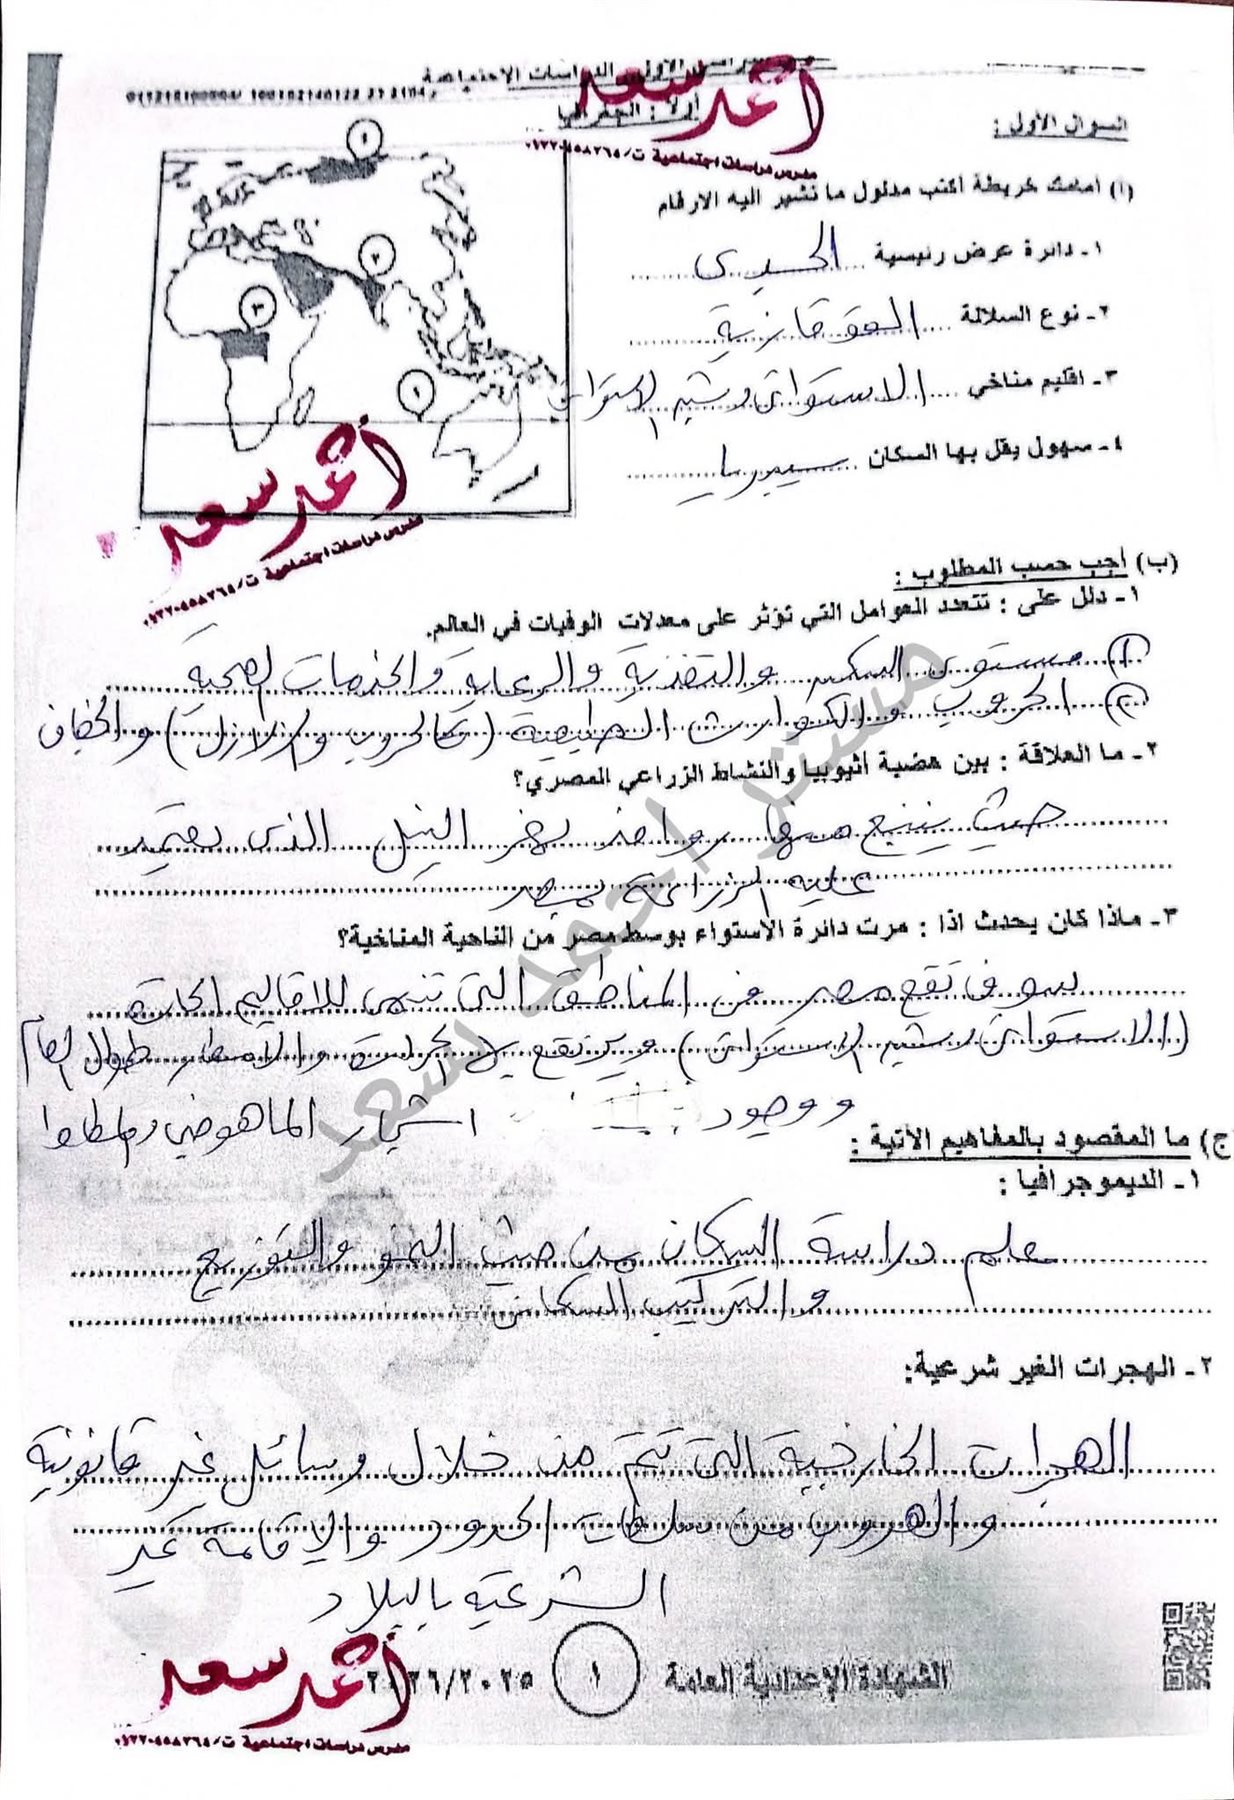 الدراسات الإجتماعية
أولاً : الجغرافيا
السؤال الأول :
(أ) أمامك خريطة أكتب مدلول ما تشير اليه الارقام
١- دائرة عرض رئيسية الجدى
٢- نوع السلالة القوقازية
٣- اقليم مناخي الاستوائى وشبه الاستوائى
٤- سهول يقل بها السكان سيبريا
أحمد سعد
مدرس دراسات اجتماعية ت/
أحمد سعد
مدرس دراسات اجتماعية ت/
(ب) أجب حسب المطلوب :
١- دلل على : تتعدد العوامل التي تؤثر على معدلات الوفيات في العالم.
① مستوى السكن والتغذية والرعاية والخدمات الصحية
② الحروب والكوارث الطبيعية (كالحروب والزلازل) والجفاف
٢- ما العلاقة : بين هضبة أثيوبيا والنشاط الزراعي المصري؟
حيث ينبع منها روافد نهر النيل الذى يعتمد
عليه الزراعة بمصر
٣- ماذا كان يحدث اذا : مرت دائرة الاستواء بوسط مصر من الناحية المناخية؟
سوف تقع مصر فى المناطق التى تنتمى للاقاليم الحارة
(الاستوائى وشبه الاستوائى) وترتفع بها الحرارة والامطار طوال العام
ووجود اشجار الماهوجنى والمطاط
ج) ما المقصود بالمفاهيم الآتية :
١- الديموجرافيا :
علم دراسة السكان من حيث النمو والتوزيع
والتركيب السكانى
٢- الهجرات الغير شرعية:
الهجرات الخارجية التى تتم من خلال وسائل غير قانونية
والهروب من سلطات الحدود والاقامة غير
الشرعية بالبلاد
مستر احمد سعد
الشهادة الإعدادية العامة ١ ٢٠٢٦/٢٠٢٥
أحمد سعد
مدرس دراسات اجتماعية ت/